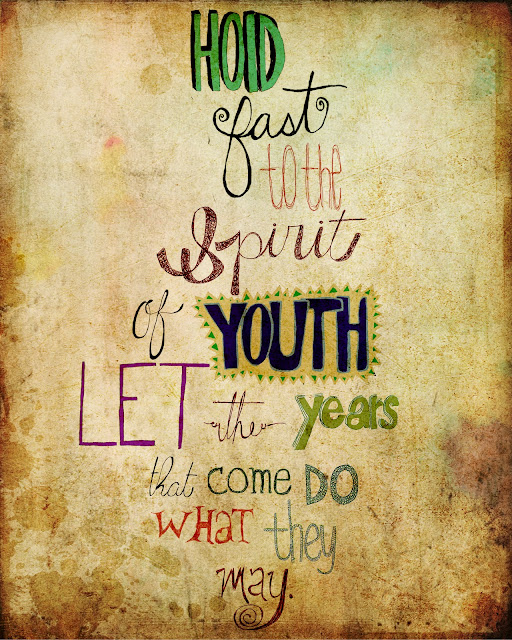 HOLD
fast
to the
Spirit
of YOUTH
LET the years
that come DO
WHAT they
may.